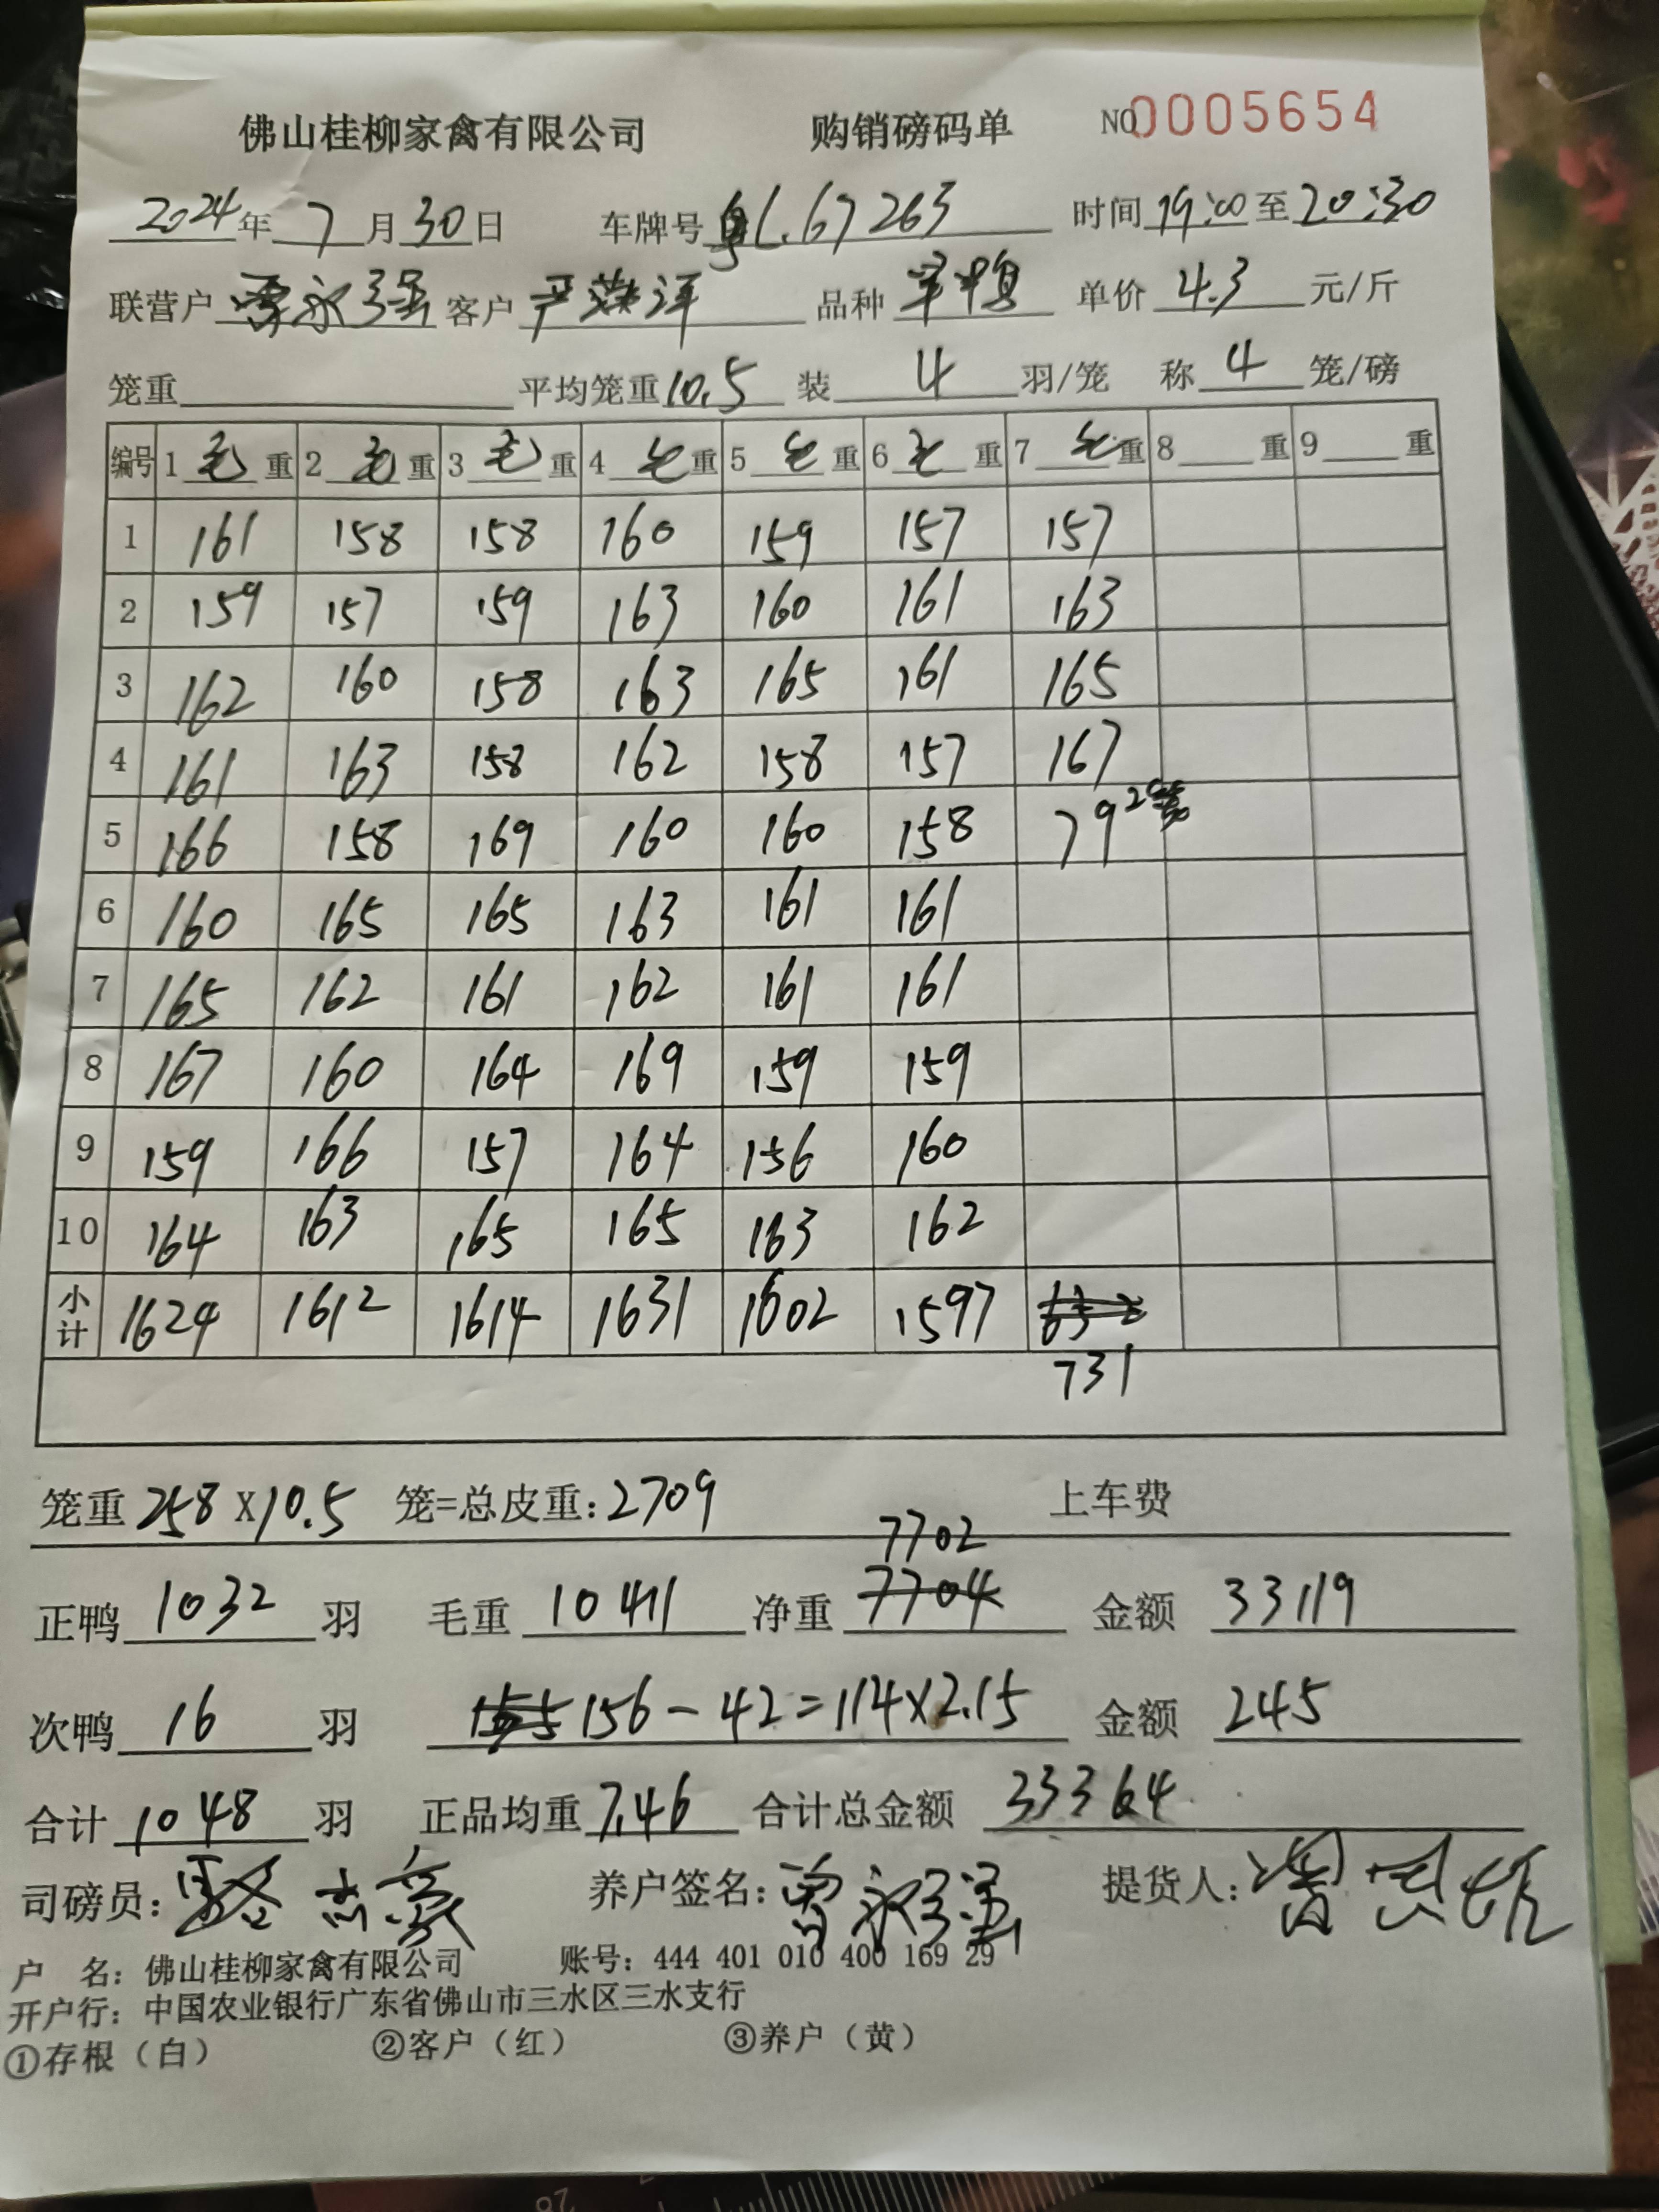 佛山桂柳家禽有限公司 购销磅码单 NO 0005654
2024年 7 月 30 日 车牌号 粤L.67263 时间 19:00 至 20:30
联营户 曾永强 客户 严 洋 品种 单价 4.3 元/斤
笼重 平均笼重 10.5 装 4 羽/笼 称 4 笼/磅
编号 1 毛 重 2 毛 重 3 毛 重 4 毛 重 5 毛 重 6 毛 重 7 毛 重 8 重 9 重
1 161 158 158 160 159 157 157
2 159 157 159 163 160 161 163
3 162 160 158 163 165 161 165
4 161 163 158 162 158 157 167
5 166 158 169 160 160 158 79 2笼
6 160 165 165 163 161 161
7 165 162 161 162 161 161
8 167 160 164 169 159 159
9 159 166 157 164 156 160
10 164 163 165 165 163 162
小计 1624 1612 1614 1631 1602 1597 652
731
笼重 258 X 10.5 笼=总皮重：2709 上车费
7702
正鸭 1032 羽 毛重 10411 净重 7704 金额 33119
次鸭 16 羽 155 156-42=114×2.15 金额 245
合计 1048 羽 正品均重 7.46 合计总金额 33364
司磅员： 骆志豪 养户签名：曾永强 提货人：
户 名：佛山桂柳家禽有限公司 账号：444 401 010 400 169 29
开户行：中国农业银行广东省佛山市三水区三水支行
①存根（白） ②客户（红） ③养户（黄）